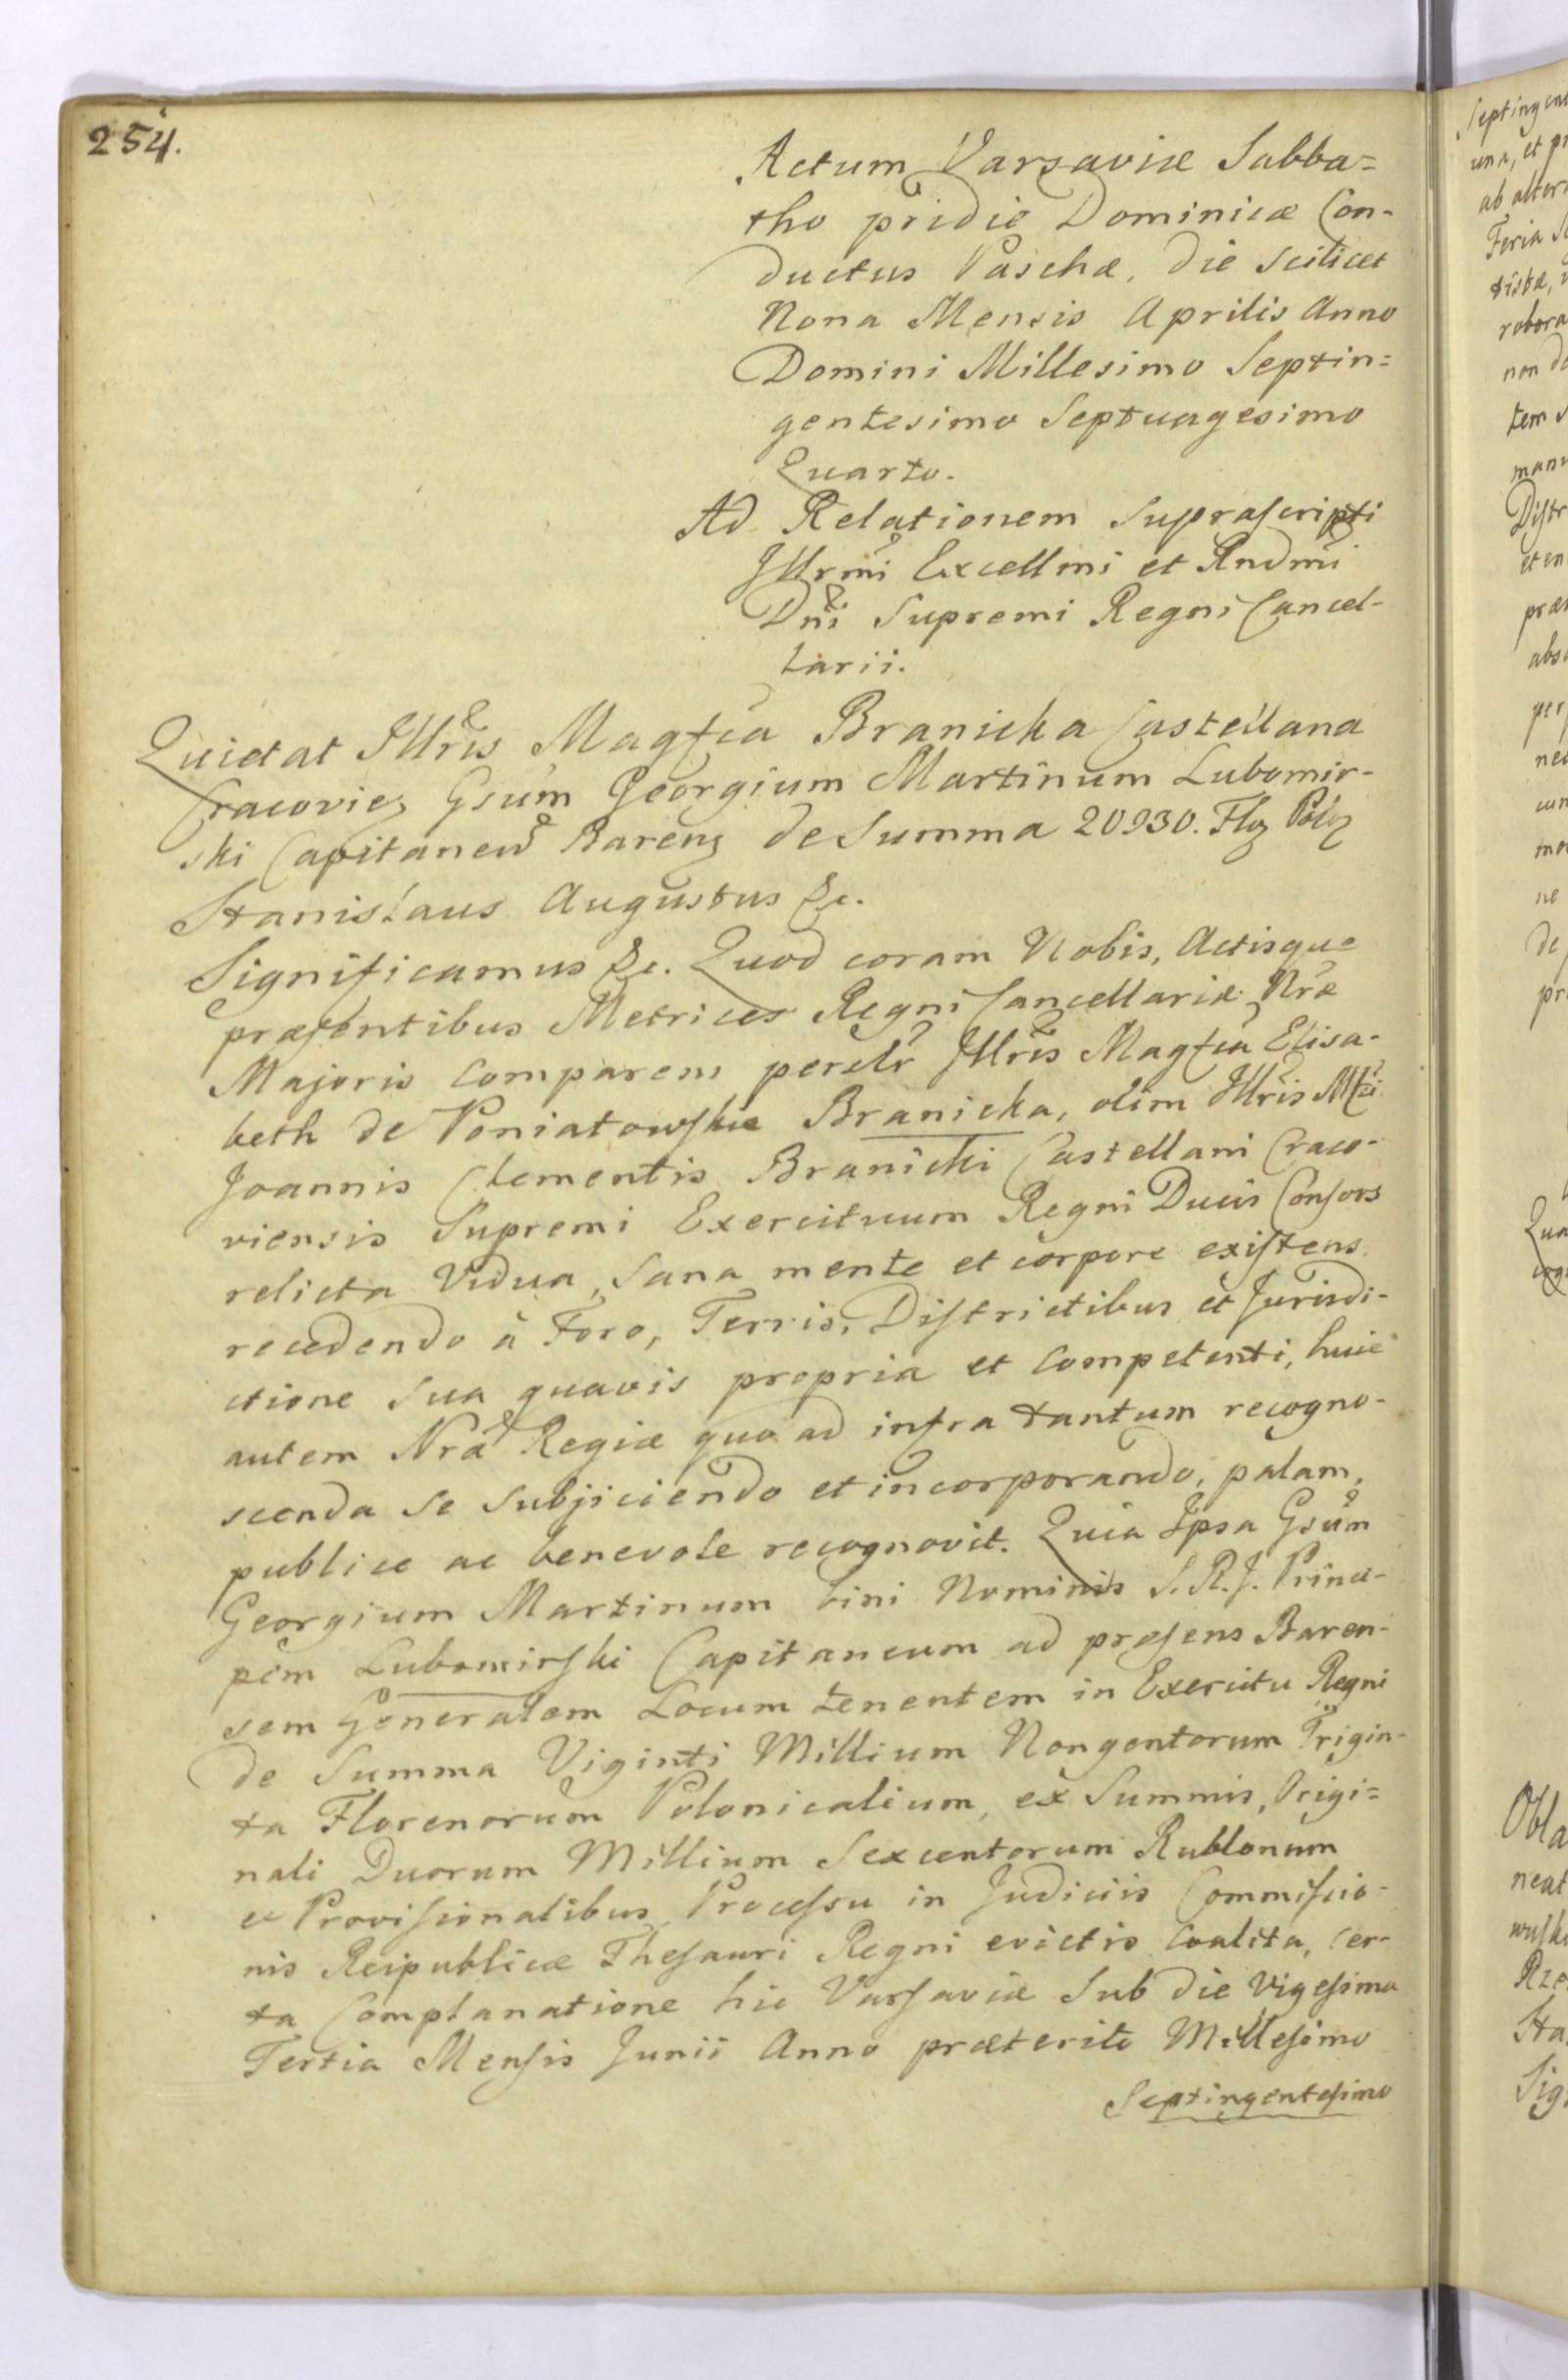 254.
Actum Varsaviæ Sabba=
tho pridie Dominicæ Con-
ductus Paschæ, die scilicet
Nona Mensis Aprilis Anno
Domini Millesimo Septin=
gentesimo Septuagesimo
Quarto.
Ad Relationem Supraſcripti
Illrmi Excellmi et Rndmi
Dni Supremi Regni Cancel-
larii.
Quietat Illris Magfca Branicka Castellana
Cracovien Gsum Georgium Martinum Lubomir-
ski Capitaneum Baren de Summa 20930. Flo Pol
Stanislaus Augustus &c.
Significamus &c. Quod coram Nobis, Actisque
præſentibus Metrices Regni Cancellariæ Nræ
Majoris Comparens personlr Illris Magfca Elisa-
beth de Poniatowſkie Branicka, olim Illris Mfci
Joannis Clementis Branicki Castellani Craco-
viensis Supremi Exercituum Regni Ducis Conſors
relicta Vidua, Sana mente et corpore exiſtens
recedendo à Foro, Terris, Diſtrictibus et Jurisdi-
ctione sua quavis propria et Competenti, huic
autem Nræ Regiæ quo ad infra tantum recogno-
scenda se subjiciendo et incorporando, palam,
publice ac benevole recognovit. Quia Ipsa Gsum
Georgium Martinum bini Nominis S. R. J. Princi-
pem Lubomirſki Capitaneum ad preſens Baren-
sem Generalem Locum tenentem in Exercitu Regni
de Summa Viginti Millium Nongentorum Trigin-
ta Florenorum Polonicalium, ex Summis, Origi=
nali Duorum Millium Sexcentorum Rublonum
et Proviſionalibus Proceſsu in Judiciis Commiſsio-
nis Reipublicæ Theſauri Regni evictis Coalita, cer-
ta Complanatione hic Varſaviæ Sub die Vigeſima
Tertia Menſis Junii Anno præterito Milleſimo
Septingenteſimo